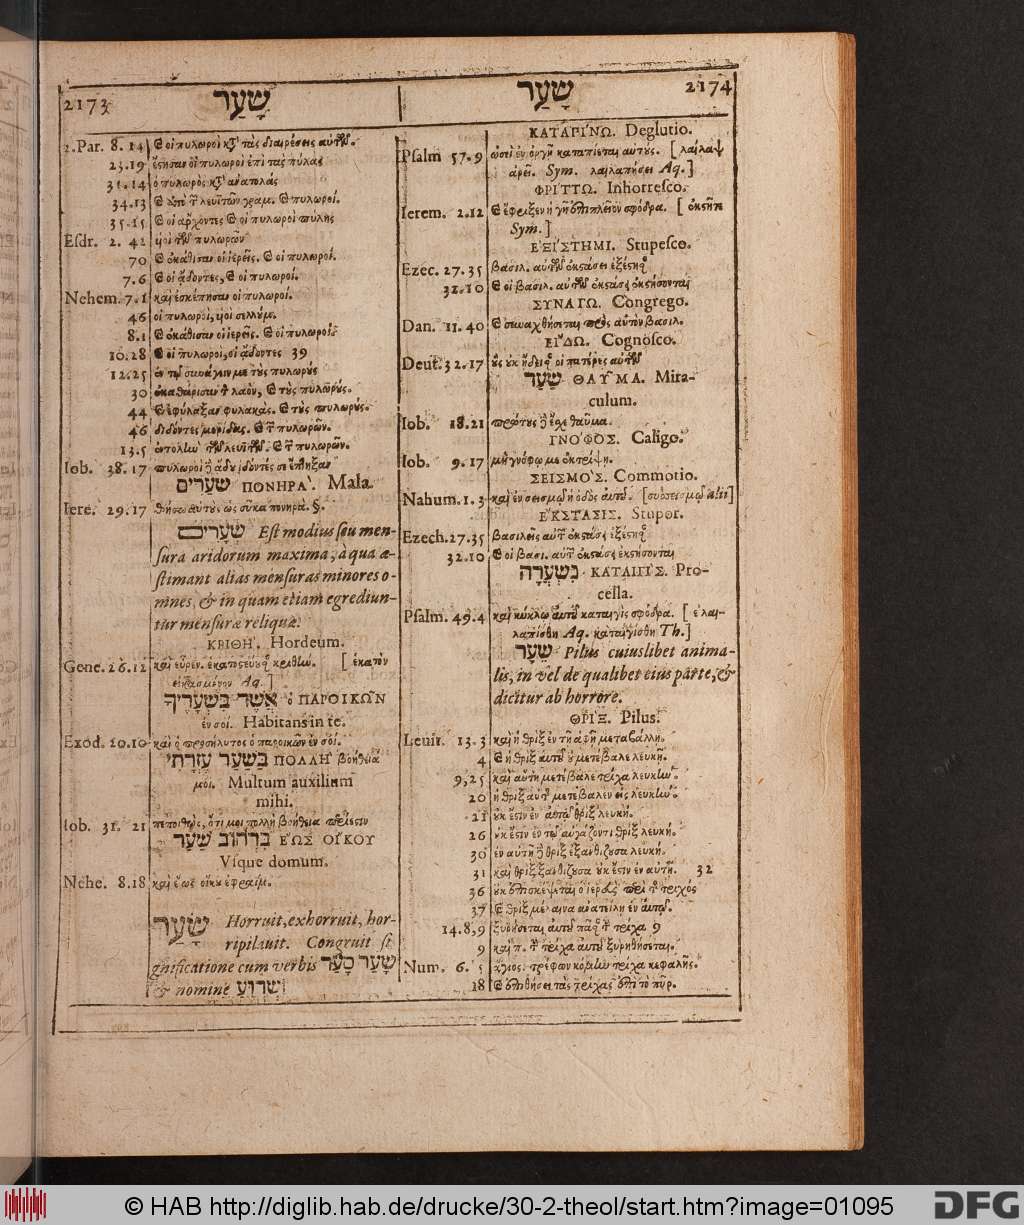 2173 שָׁעַר
2.Par. 8.14 οἱ πυλωροὶ τὰς διαιρέσεις αὐτῶν.
23.19 ἔστησαν οἱ πυλωροὶ ἐπὶ τὰς πύλας
31.14 ὁ πυλωρὸς ἀνατολάς
34.13 πυλωροί.
35.15 οἱ ἄρχοντες οἱ πυλωροὶ πύλης
Esdr. 2. 42 υἱοὶ τῶν πυλωρῶν
70 ἐκάθισαν οἱ ἱερεῖς. οἱ πυλωροί.
7.6 οἱ ᾄδοντες, οἱ πυλωροί.
Nehem. 7.1 καὶ ἐσκέπησαν οἱ πυλωροί.
46 οἱ πυλωροί, υἱοὶ σελλύμ.
8.1 ἐκάθισαν οἱ ἱερεῖς. οἱ πυλωροί
10.28 οἱ πυλωροί, οἱ ᾄδοντες 39
12.25 ἐν τῷ συναγαγεῖν με τοὺς πυλωρούς
30 ἐκαθάρισαν λαὸν, τοὺς πυλωρούς.
44 ἐφύλαξαν φυλακὰς. τοὺς πυλωρούς.
46 διδόντες μερίδας. πυλωρῶν.
13.5 ἐντολὴν τῶν λευιτῶν. πυλωρῶν.
Iob. 38.17 πυλωροὶ ἅδου ἰδόντές σε ἔπτηξαν
שְׁעָרִים ΠΟΝΗΡΑ'. Mala.
Iere. 29.17 θήσω αὐτοὺς ὡς σῦκα πονηρά. §.
שְׁעָרִים Est modius seu men-
sura aridorum maxima, à qua æ-
stimant alias mensuras minores o-
mnes, & in quam etiam egrediun-
tur mensuræ reliquæ.
ΚΡΙΘΗ'. Hordeum.
Gene. 26.12 καὶ εὗρεν. κριθήν. [ ἑκατὸν
Aq. ]
אֲשֶׁר בִּשְׁעָרֶיךָ ὁ ΠΑΡΟΙΚΩ͂Ν
ἐν σοί. Habitans in te.
Exod. 20.10 καὶ ὁ προσήλυτος ὁ παροικῶν ἐν σοί.
בַּשַּׁעַר עֶזְרָתִי ΠΟΛΛΗ' βοήθειά
μοι. Multum auxilium
mihi.
Iob. 31. 21 πεποιθὼς, ὅτι μοι πολλὴ βοήθεια περίεστιν
בִּרְחוֹב שַׁעַר Ε῾ΩΣ ΟΙ῎ΚΟΥ
Vsque domum.
Nehe. 8.18 καὶ ἕως οἴκου ἐφραίμ.
שָׂעַר Horruit, exhorruit, hor-
ripilauit. Congruit si-
gnificatione cum verbis שָׂעַר סָעַר
& nomine
שָׂעַר 2174
ΚΑΤΑΠΙ'ΝΩ. Deglutio.
Psalm 57.9 ὡσεὶ ἐν ὀργῇ καταπίεται αὐτούς. [ λαίλαψ
ἀρεῖ. Sym. λαιλαπήσει Aq. ]
ΦΡΙ'ΤΤΩ. Inhorresco.
Ierem. 2.12 ἔφριξεν ἡ γῆ ἐπὶ πλεῖον σφόδρα. [ ἔκστητε
Sym. ]
ΕΞΙ'ΣΤΗΜΙ. Stupesco.
Ezec. 27.35 βασιλ. αὐτῶν ἐκστάσει
32.10 οἱ βασιλ. αὐτῶν ἐκστάσει ἐκστήσονται
ΣΥΝΑ'ΓΩ. Congrego.
Dan. 11.40 συναχθήσεται πρὸς αὐτὸν βασιλ.
ΕΙ'ΔΩ. Cognosco.
Deut. 32.17 οὓς οὐκ ᾔδεισαν οἱ πατέρες αὐτῶν
שַׂעַר ΘΑΥ͂ΜΑ. Mira-
culum.
Iob. 18.21 πρώτους ἔσχε θαῦμα.
ΓΝΟ'ΦΟΣ. Caligo.
Iob. 9.17 μὴ γνόφῳ με ἐκτρίψῃ.
ΣΕΙΣΜΟ'Σ. Commotio.
Nahum. 1.3 καὶ ἐν σεισμῷ ἡ ὁδὸς αὐτοῦ. [συσσεισμῷ alii]
Ε῎ΚΣΤΑΣΙΣ. Stupor.
Ezech. 27.35 βασιλεῖς αὐτῶν ἐκστάσει
32.10 οἱ βασι. αὐτῶν ἐκστάσει ἐκστήσονται
נִשְׂעֲרָה ΚΑΤΑΙΓΙ'Σ. Pro-
cella.
Psalm. 49.4 καὶ κύκλῳ αὐτοῦ καταιγὶς σφόδρα. [ ἐλαι-
λαπίσθη Aq. καταιγίσθη Th. ]
שֵׂעָר Pilus cuiuslibet anima-
lis, in vel de qualibet eius parte, &
dicitur ab horrore.
ΘΡΙ'Ξ. Pilus.
Leuit. 13.3 καὶ ἡ θρὶξ ἐν τῇ ἁφῇ μεταβάλλῃ.
4 ἡ θρὶξ αὐτοῦ οὐ μετέβαλε λευκή.
9,25 καὶ αὕτη μετέβαλε τρίχα λευκήν.
20 ἡ θρὶξ αὐτοῦ μετέβαλεν εἰς λευκήν.
21 οὐκ ἔστιν ἐν αὐτῷ θρὶξ λευκή.
26 οὐκ ἔστιν ἐν τῷ αὐγάζοντι θρὶξ λευκή.
30 ἐν αὐτῇ θρὶξ ξανθίζουσα λευκή.
31 καὶ θρὶξ ξανθίζουσα οὐκ ἔστιν ἐν αὐτῇ. 32
36 οὐκ ἐπισκέψεται ὁ ἱερεὺς περὶ τριχός
37 θρὶξ μέλαινα ἀνατείλῃ ἐν αὐτῷ.
14.8,9 ξυρήσεται αὐτοῦ τρίχα 9
9 τρίχα αὐτοῦ ξυρηθήσεται.
Num. 6. 5 ἅγιος. τρέφων κόμην τρίχα κεφαλῆς.
18 ἐπιθήσει τὰς τρίχας ἐπὶ τὸ πῦρ.
© HAB http://diglib.hab.de/drucke/30-2-theol/start.htm?image=01095
DFG